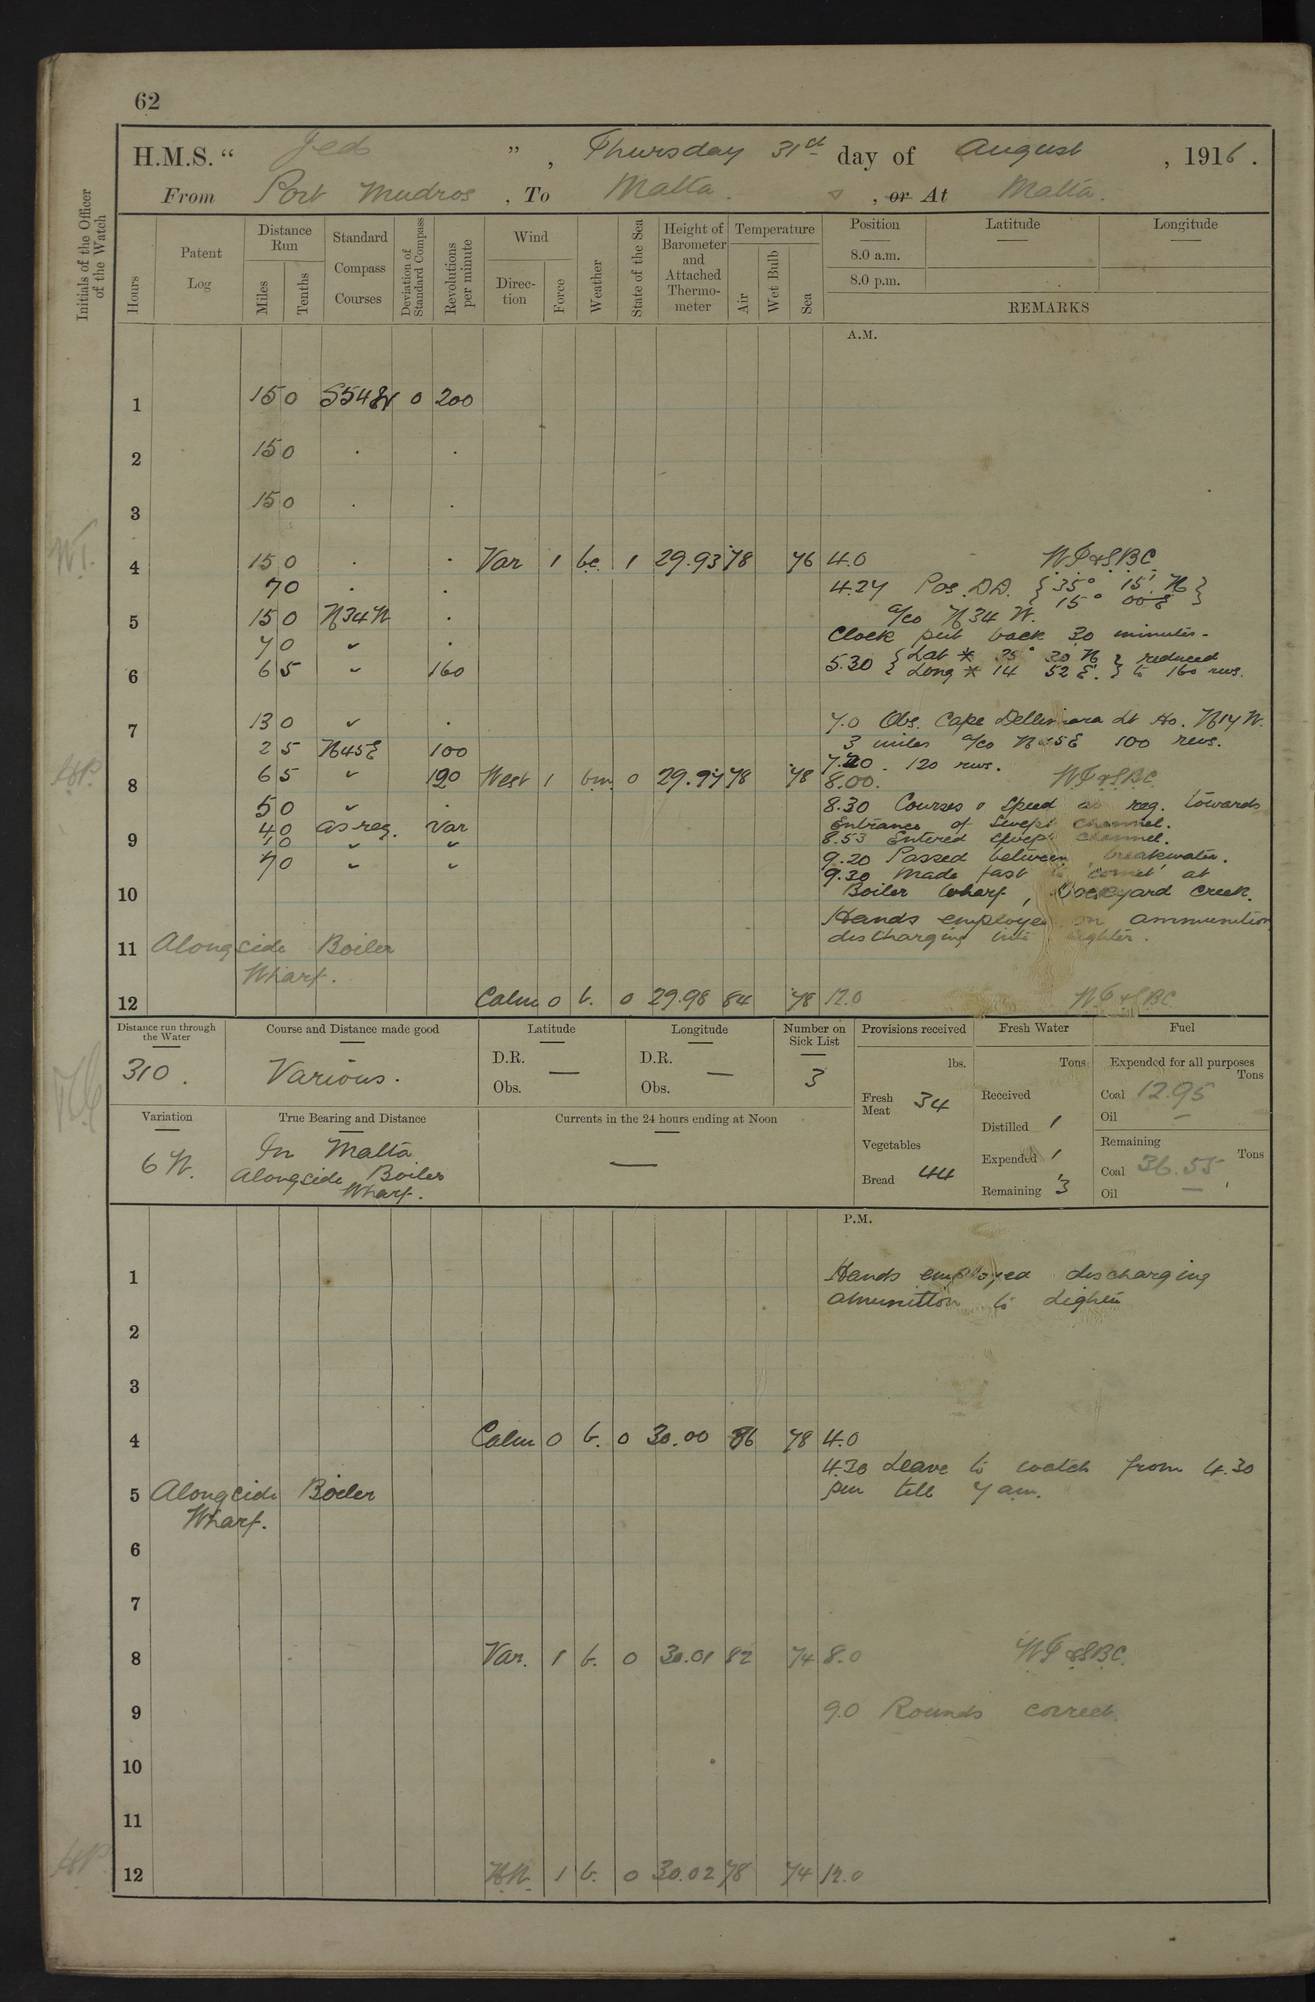 62
H.M.S. “ Jed ” , Thursday 31st day of August , 1916 .
From Port Mudros , To Malta . s , or At Malta .
Initials of the Officer of the Watch
Hours
Patent Log
Distance Run
Miles
Tenths
Standard Compass Courses
Deviation of Standard Compass
Revolutions per minute
Wind
Direction
Force
Weather
State of the Sea
Height of Barometer and Attached Thermometer
Temperature
Air
Wet Bulb
Sea
Position Latitude Longitude
8.0 a.m.
8.0 p.m.
REMARKS
A.M.
1 15 0 S54W 0 200
2 15 0 . .
3 15 0 . .
4 15 0 . . Var 1 bc. 1 29.93 78 76 4.0 WT&SBC
7 0 . . 4.27 Pos. D.R. { 35° 15' N }
15° 00 E
5 15 0 N34W . a/co N34 W.
7 0 " . Clock put back 30 minutes.
6 6 5 " 160 5.30 { Lat * 35° 30 N } reduced
Long * 14 52 E. } to 160 revs.
7 13 0 " . 7.0 Obs. Cape Dellimara Lt Ho. N17W.
2 5 N45E 100 3 miles a/co N45E 100 revs.
7.20 . 120 revs.
8 6 5 " 120 West 1 bm. 0 29.97 78 78 8.00. WT&SBC
5 0 " . 8.30 Courses & Speed as req. towards
4 0 as req. Var Entrance of Swept Channel.
9 4 0 " " 8.53 Entered swept channel.
7 0 " " 9.20 Passed between breakwater.
9.30 Made fast to 'Comet' at
10 Boiler Wharf, Dockyard Creek.
Hands employed on ammunition
11 Alongside Boiler discharging into lighter.
Wharf.
12 Calm 0 b. 0 29.98 84 78 12.0 WT&SBC
Distance run through the Water
310 .
Course and Distance made good
Various .
Latitude
D.R.
Obs. —
Longitude
D.R.
Obs. —
Number on Sick List
3
Provisions received
lbs.
Fresh Meat 34
Vegetables
Bread 44
Fresh Water
Tons
Received
Distilled 1
Expended 1
Remaining 3
Fuel
Expended for all purposes
Tons
Coal 12.95
Oil —
Remaining
Tons
Coal 36.55
Oil —
Variation
6 W.
True Bearing and Distance
In Malta
Alongside Boiler
Wharf.
Currents in the 24 hours ending at Noon
—
P.M.
1 Hands employed discharging
amunition to Lighter
2
3
4 Calm 0 b. 0 30.00 86 78 4.0
4.30 Leave to watch from 4.30
5 Alongside Boiler pm till 7 am.
Wharf.
6
7
8 Var. 1 b. 0 30.01 82 74 8.0 WT&SBC.
9 9.0 Rounds correct.
10
11
12 1 b. 0 30.02 78 74 12.0